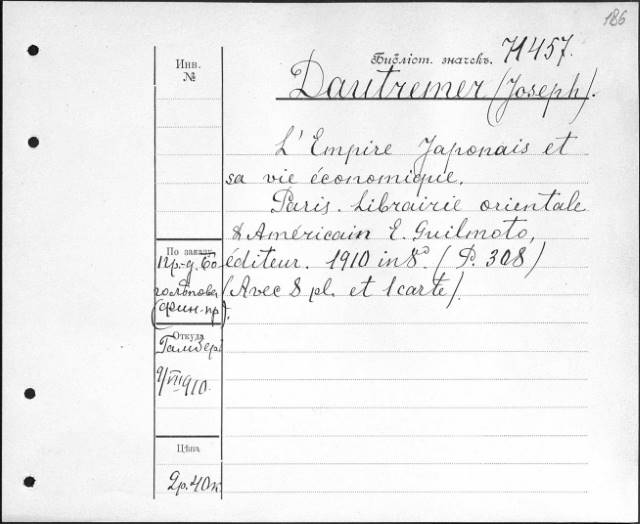 186
Инв.
№
Библіот. значекъ. 71457.
Dautremer (Joseph).
L'Empire Japonais et
sa vie économique.
Paris. Librairie orientale
& Américain E. Guilmoto,
éditeur. 1910 in 8º. (P. 308)
(Avec 8 pl. et 1 carte).
По заказу
пр.-д. Бо
(Фин-пр).
Откуда
9/VII 1910.
Цѣна
2р. 40к